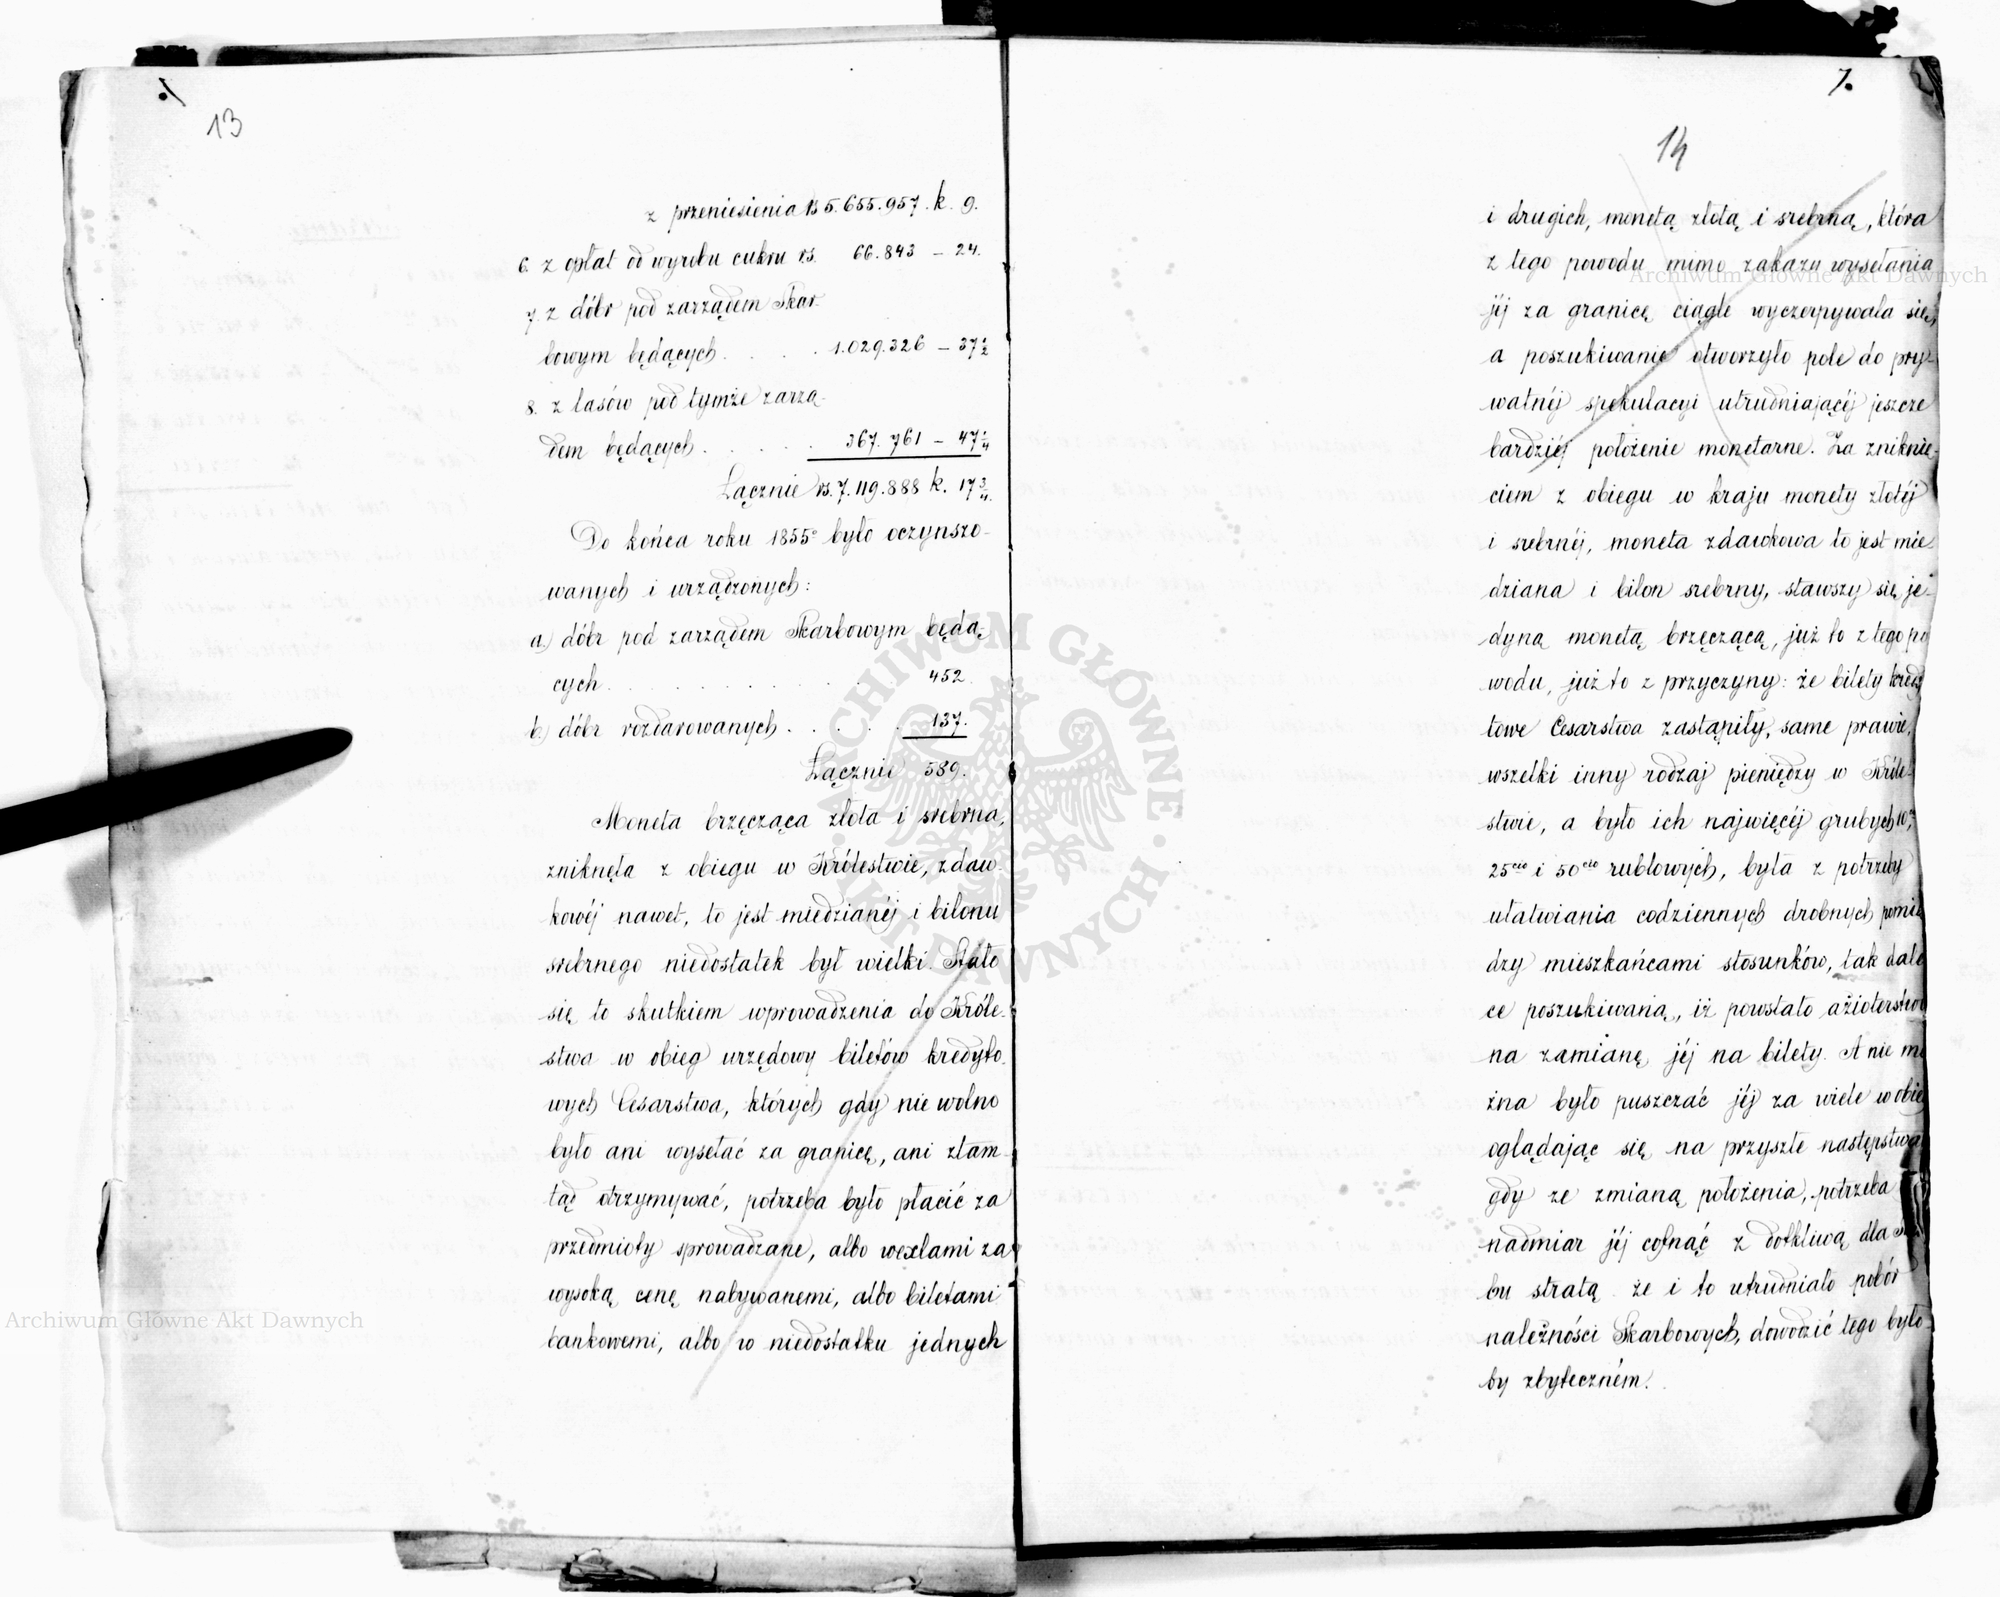 13
z przeniesienia rs 5.655.957. k. 9.
6. z opłat od wyrobu cukru rs. 66.843 – 24.
7. z dóbr pod zarządem Skar-
bowym będących . . . . 1.029.326 – 37 1/2
8. z lasów pod tymże zarzą-
dem będących . . . . 367.761 – 47 1/4
Łącznie rs. 7.119.888 k. 17 3/4.
Do końca roku 1855º było oczynszo-
wanych i urządzonych:
a) dóbr pod zarządem Skarbowym będą-
cych . . . . . . . . . . 452.
b) dóbr rozdarowanych . . . . . 137.
Łącznie 589.
Moneta brzęcząca złota i srebrna,
zniknęła z obiegu w Królestwie, zdaw-
kowéj nawet, to jest miedzianéj i bilonu
srebrnego niedostatek był wielki. Stało
się to skutkiem wprowadzenia do Króle-
stwa w obieg urzędowy biletów kredyto-
wych Cesarstwa, których gdy nie wolno
było ani wysełać za granicę, ani ztam-
tąd otrzymywać, potrzeba było płacić za
przedmioty sprowadzane, albo wexlami za
wysoką cenę nabywanemi, albo biletami
bankowemi, albo w niedostatku jednych
7.
14
i drugich, monetą złotą i srebrną, która
z tego powodu mimo zakazu wysełania
jéj za granicę ciągle wyczerpywała się,
a poszukiwanie otworzyło pole do pry-
watnéj spekulacyi utrudniającéj jeszcze
bardziéj położenie monetarne. Za zniknię-
ciem z obiegu w kraju monety złotéj
i srebrnéj, moneta zdawkowa to jest mie-
dziana i bilon srebrny, stawszy się je-
dyną monetą brzęczącą, już to z tego po
wodu, już to z przyczyny: że bilety kredy
towe Cesarstwa zastąpiły, same prawie,
wszelki inny rodzaj pieniędzy w Króle-
stwie, a było ich najwięcéj grubych 10,
25cio i 50cio rublowych, była z potrzeby
ułatwiania codziennych drobnych pomię
dzy mieszkańcami stosunków, tak dale
ce poszukiwaną, iż powstało ażioterstwo
na zamianę jéj na bilety. A nie mo
żna było puszczać jéj za wiele w obieg
oglądając się na przyszłe następstwa
gdy ze zmianą położenia, potrzeba
nadmiar jéj cofnąć z dotkliwą dla
bu stratą. że i to utrudniało pobór
należności Skarbowych, dowodzić tego było-
by zbyteczném.
Archiwum Główne Akt Dawnych
Archiwum Główne Akt Dawnych
ARCHIWUM GŁÓWNE AKT DAWNYCH